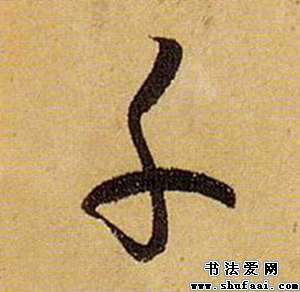 千
书法爱网
www.shufaai.com